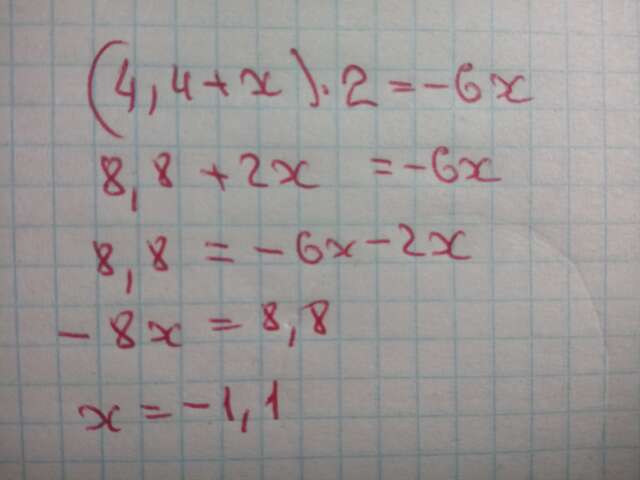 (4,4+x)·2=-6x
8,8+2x=-6x
8,8=-6x-2x
-8x=8,8
x=-1,1